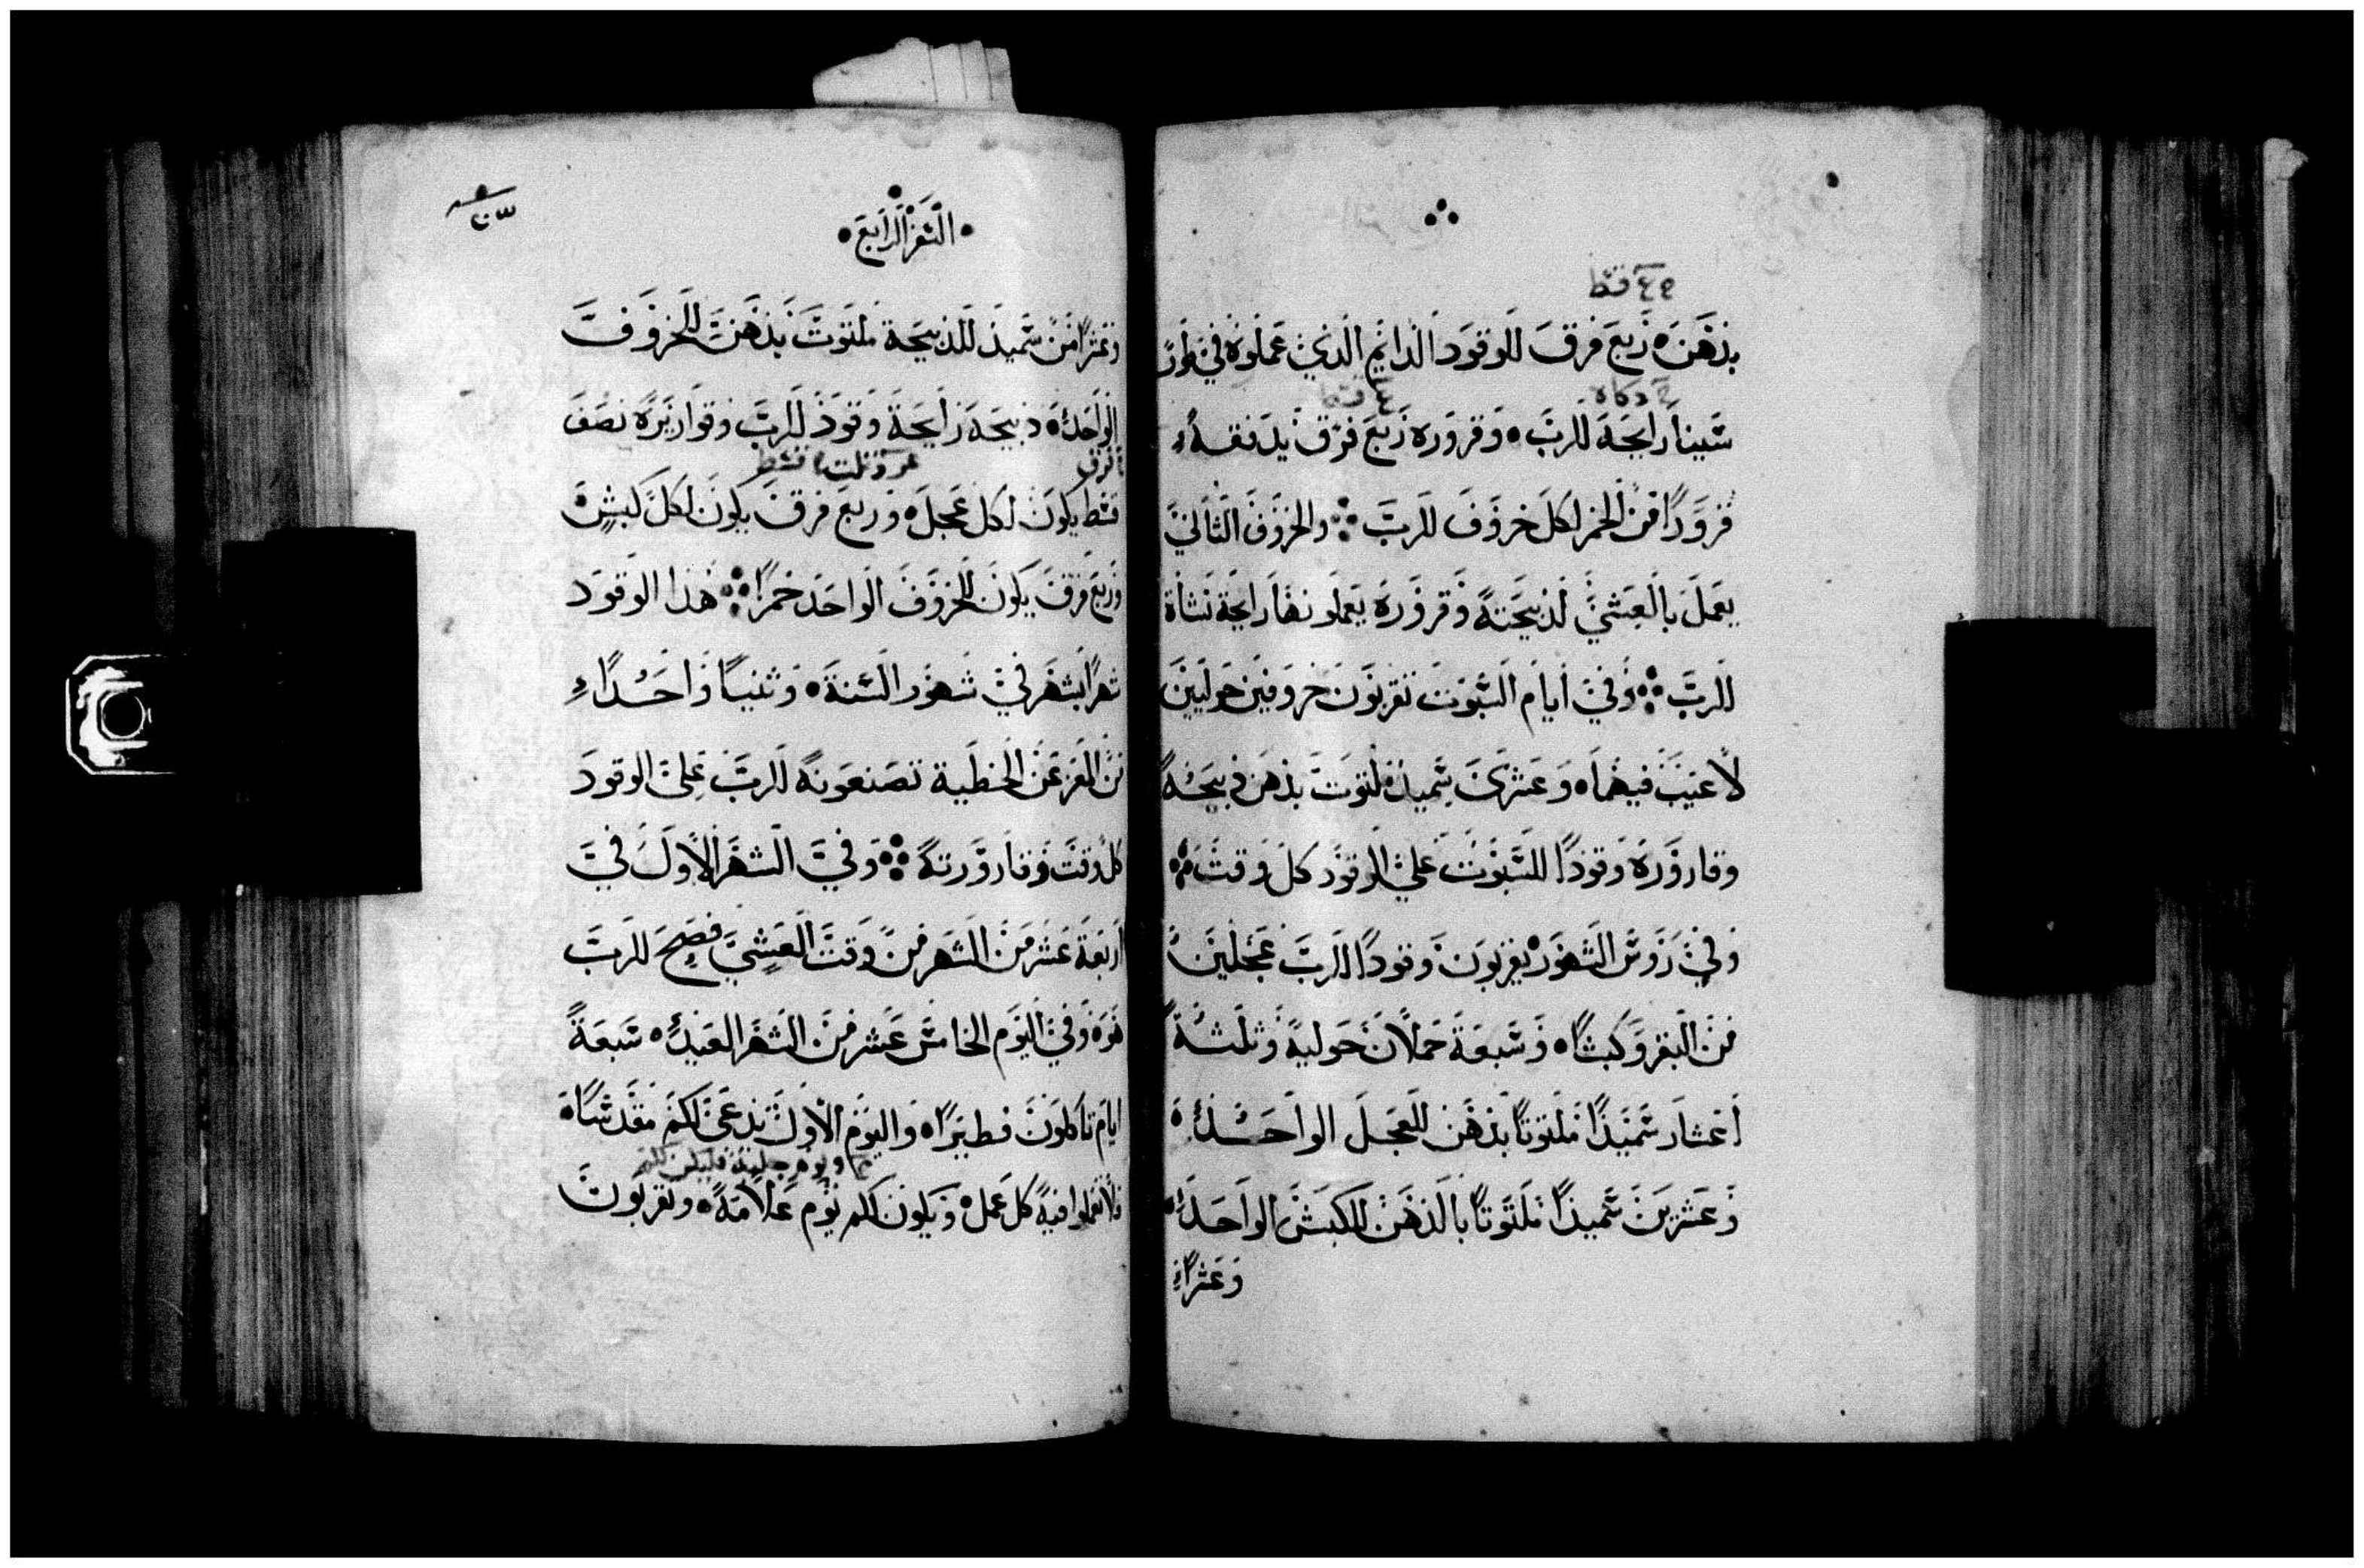 بدهن ربع فرق للوقود الدائم الذي عملوه في طور
سينا رايحة للرب وقروره ربع فرق يدفقه
قرورا من الخمر لكل خروف للرب والخروف الثاني
يعمل بالعشي لذبيحته وقروره يعملونها رايحة نشاة
للرب وفي ايام السبوت تقربون خروفين حوليين
لا عيب فيهما وعشرين سميد ملتوت بدهن ذبيحة
وقاروره وقودا للسبوت علي الوقود كل وقت
وفي روس الشهور يقربون وقودا للرب عجلين
من البقر وكبشا وسبعة حملان حولية وثلثة
اعشار سميدا ملتوتا بدهن للعجل الواحد
وعشرين سميدا ملتوتا بالدهن للكبش الواحد
وعشرا
السفر الرابع
وعشرا من سميد للذبيحة ملتوت بدهن للخروف
الواحد ذبيحة رايحة وقود للرب وقواريره نصف
قسط يكون لكل عجل وربع فرق يكون لكل كبش
وربع فرق يكون للخروف الواحد خمرا هذا الوقود
شهرا بشهر في شهور السنة وثنيا واحدا
من المعز عن الخطية تصنعونه للرب علي الوقود
كل وقت وقارورته وفي الشهر الاول في
اربعة عشر من الشهر من وقت العشي فصح للرب
هو وفي اليوم الخامس عشر من الشهر العيد سبعة
ايام تاكلون فطيرا واليوم الاول تدعي لكم مقدسا
فلا تعملوا فيه كل عمل ويكون لكم يوم علامة وتقربون